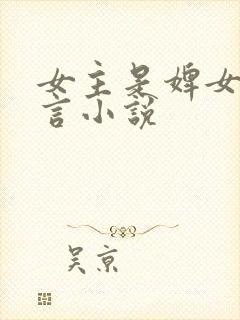 女主是婢女
言小説
吴京